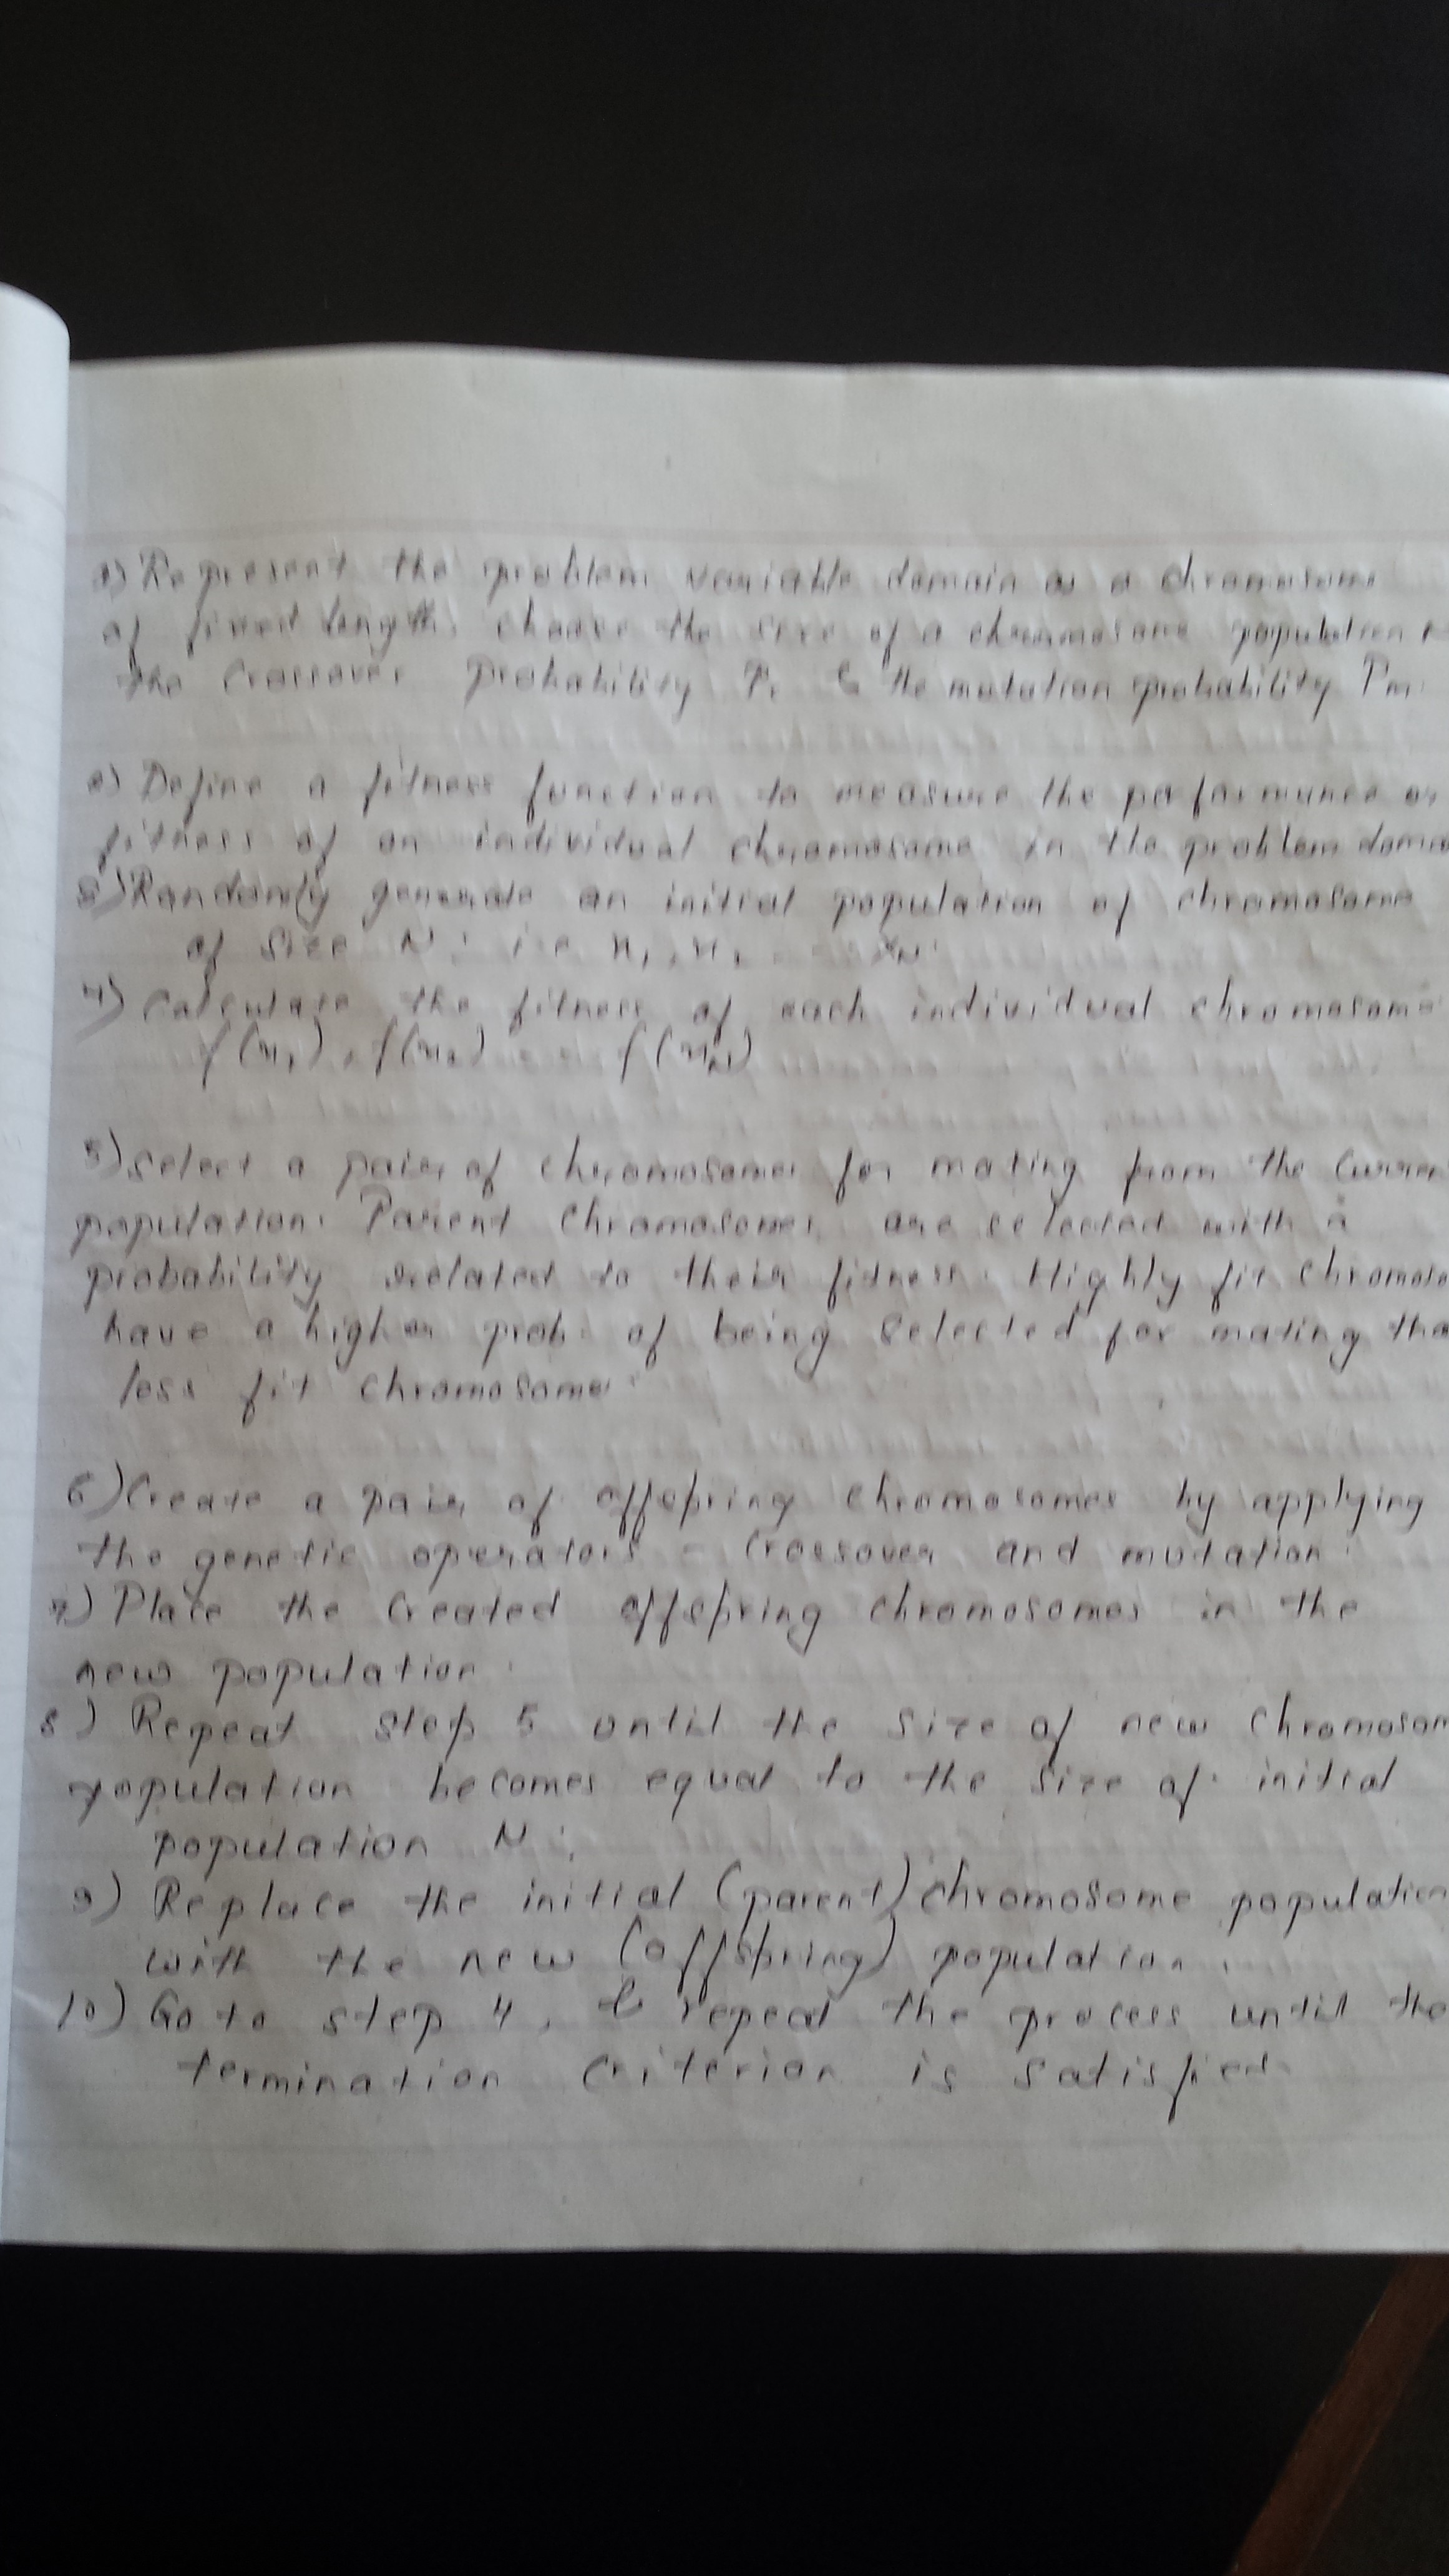 1) Represent the problem variable domain as a chromosome
of fixed length, choose the size of a chromosome population
the crossover probability Pc & the mutation probability Pm.
2) Define a fitness function to measure the performance or
fitness of an individual chromosome in the problem doma
3) Randomly generate an initial population of chromosome
of size N: i.e x1, x2 - - - xN.
4) Calculate the fitness of each individual chromosome
f(x1), f(x2) - - - f(xN)
5) Select a pair of chromosomes for mating from the curren
population. Parent chromosomes are selected with a
probability related to their fitness. Highly fit chromoso
have a higher prob. of being selected for mating tha
less fit chromosome.
6) Create a pair of offspring chromosomes by applying
the genetic operators - crossover and mutation.
7) Place the created offspring chromosomes in the
new population.
8) Repeat step 5 until the size of new chromosom
population becomes equal to the size of initial
population N.
9) Replace the initial (parent) chromosome population
with the new (offspring) population.
10) Go to step 4, & repeat the process until the
termination criterion is satisfied